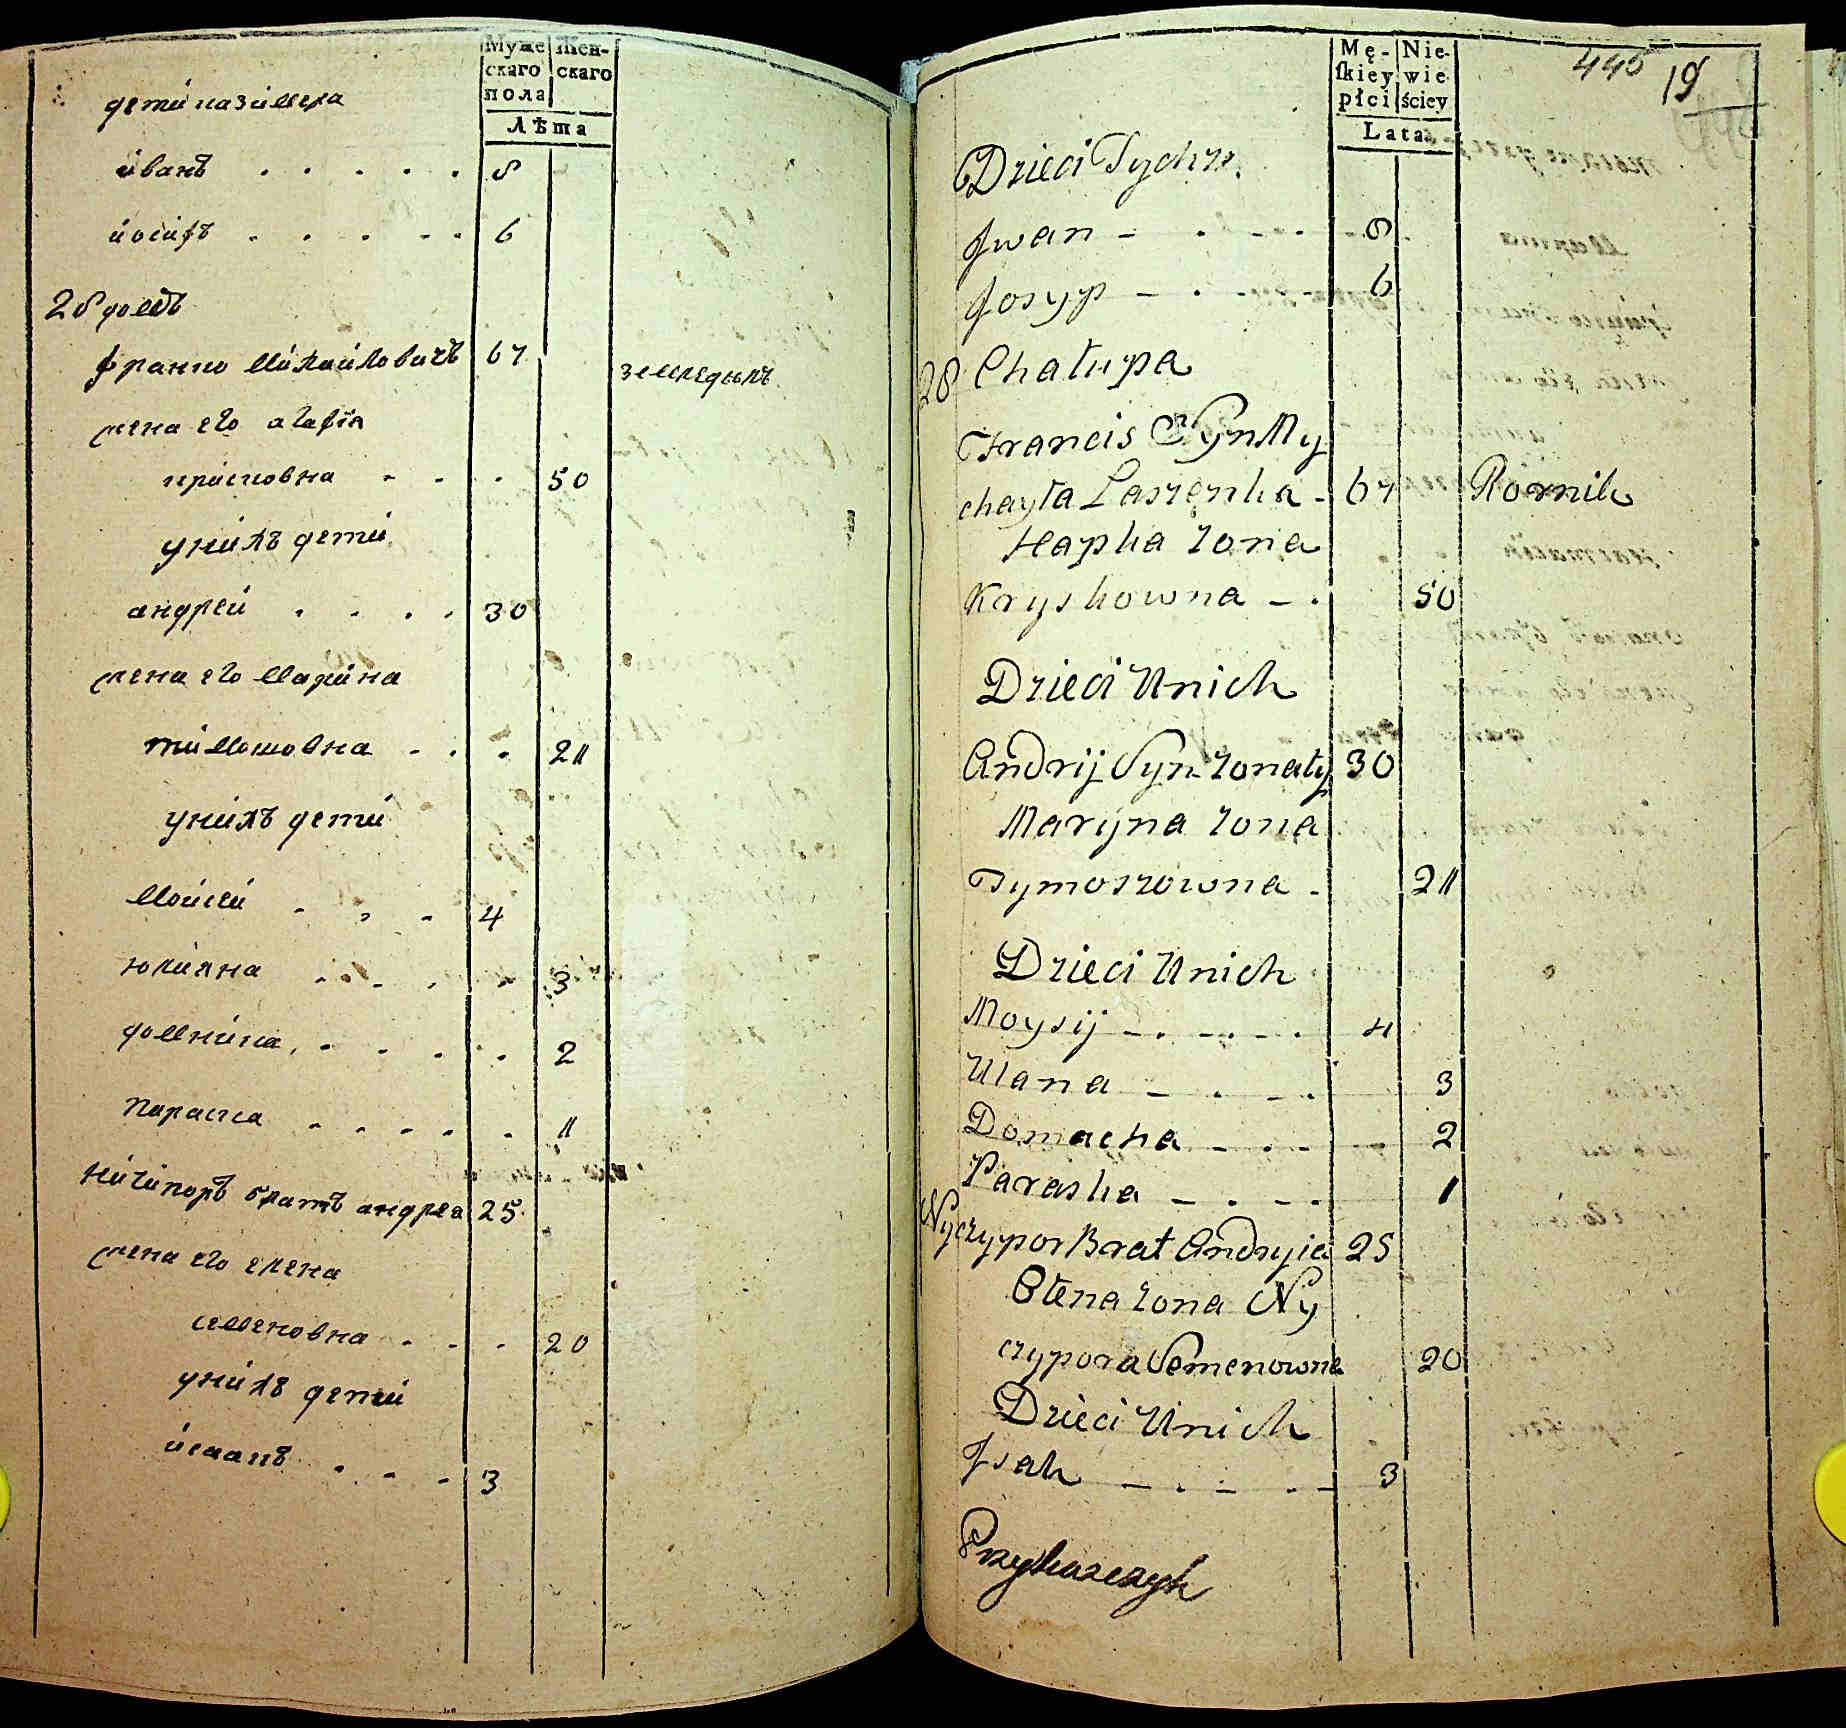 Муже Жен-
скаго скаго
пола
Лѣта
дети казимера
иванъ 8
иосифъ 6
28 домъ
франко михайловичъ 67 земледѣлъ
жена его агафія
крисковна 50
унихъ дети
андреи 30
жена его марина
тимошовна 21
унихъ дети
моисеи 4
юлияна 3
домникиа 2
параска 1
ничипоръ братъ андрея 25
жена его елена
семеновна 20
унихъ дети
исаакъ 3
Mę- Nie-
skiey wie
płci ściey
Lata
445 19
Dzieci Tychże
Jwan 8
Josyp 6
28 Chałupa
Francis Syn My
chayła Laszenka 67 Rornik
Hapka żona
Kryskowna 50
Dzieci Unich
Andrij Syn żonaty 30
Maryna żona
Tymoszowna 21
Dzieci Unich
Moysij 4
Ulana 3
Domacha 2
Paraska 1
Nyczypor Brat Andryia 25
Ołena żona Ny
czypora Semenowna 20
Dzieci Unich
Jsak 3